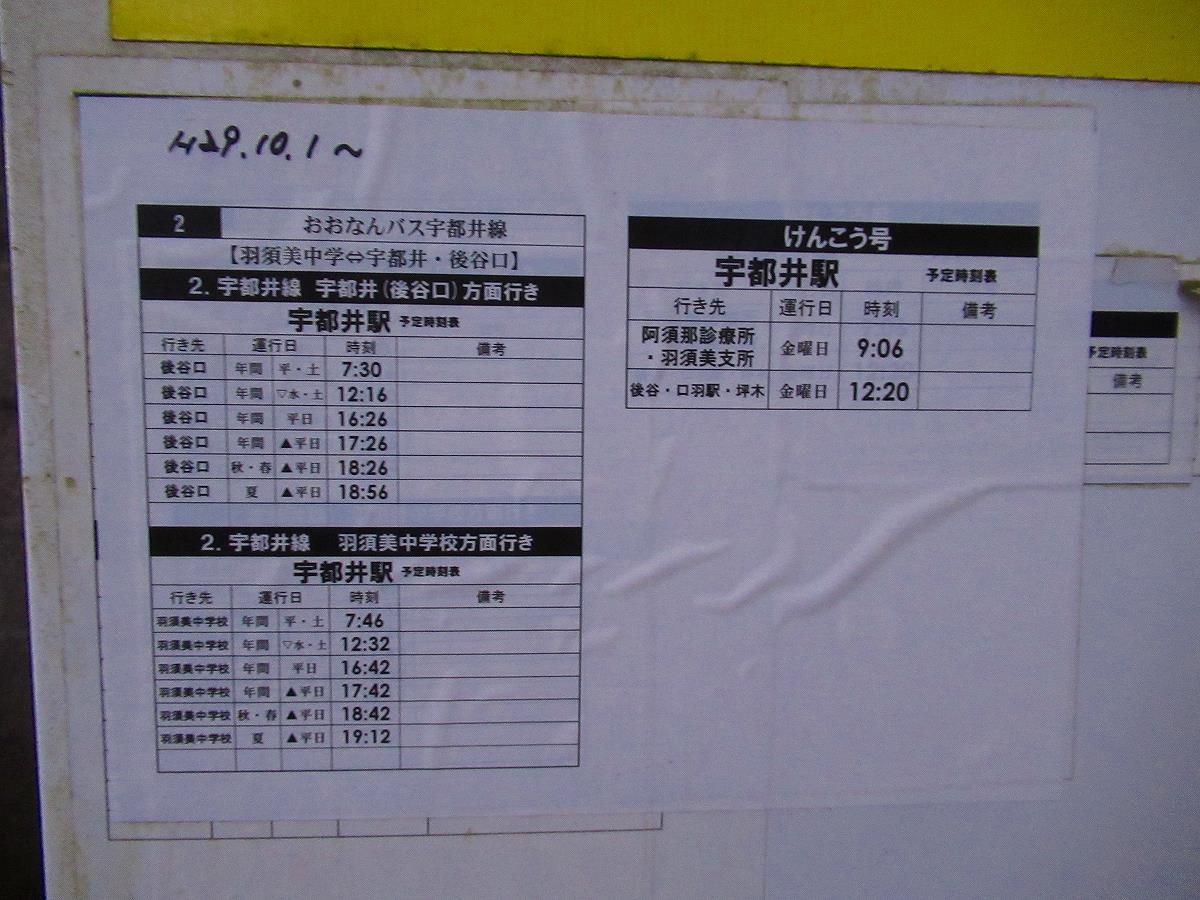 H29.10.1～
2 おおなんバス宇都井線
【羽須美中学⇔宇都井・後谷口】
2. 宇都井線 宇都井(後谷口)方面行き
宇都井駅 予定時刻表
行き先 運行日 時刻 備考
後谷口 年間 平・土 7:30
後谷口 年間 ▽水・土 12:16
後谷口 年間 平日 16:26
後谷口 年間 ▲平日 17:26
後谷口 秋・春 ▲平日 18:26
後谷口 夏 ▲平日 18:56
2. 宇都井線 羽須美中学校方面行き
宇都井駅 予定時刻表
行き先 運行日 時刻 備考
羽須美中学校 年間 平・土 7:46
羽須美中学校 年間 ▽水・土 12:32
羽須美中学校 年間 平日 16:42
羽須美中学校 年間 ▲平日 17:42
羽須美中学校 秋・春 ▲平日 18:42
羽須美中学校 夏 ▲平日 19:12
けんこう号
宇都井駅 予定時刻表
行き先 運行日 時刻 備考
阿須那診療所
・羽須美支所 金曜日 9:06
後谷・口羽駅・坪木 金曜日 12:20
予定時刻表
備考